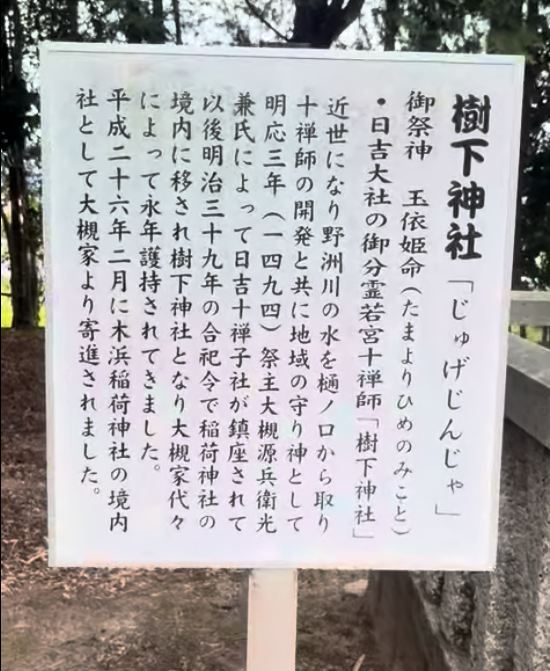 樹下神社「じゅげじんじゃ」
御祭神　玉依姫命（たまよりひめのみこと）
・日吉大社の御分霊若宮十禅師「樹下神社」
近世になり野洲川の水を樋ノ口から取り
十禅師の開発と共に地域の守り神として
明応三年（一四九四）祭主大槻源兵衛光
兼氏によって日吉十禅子社が鎮座されて
以後明治三十九年の合祀令で稲荷神社の
境内に移され樹下神社となり大槻家代々
によって永年護持されてきました。
平成二十六年二月に木浜稲荷神社の境内
社として大槻家より寄進されました。